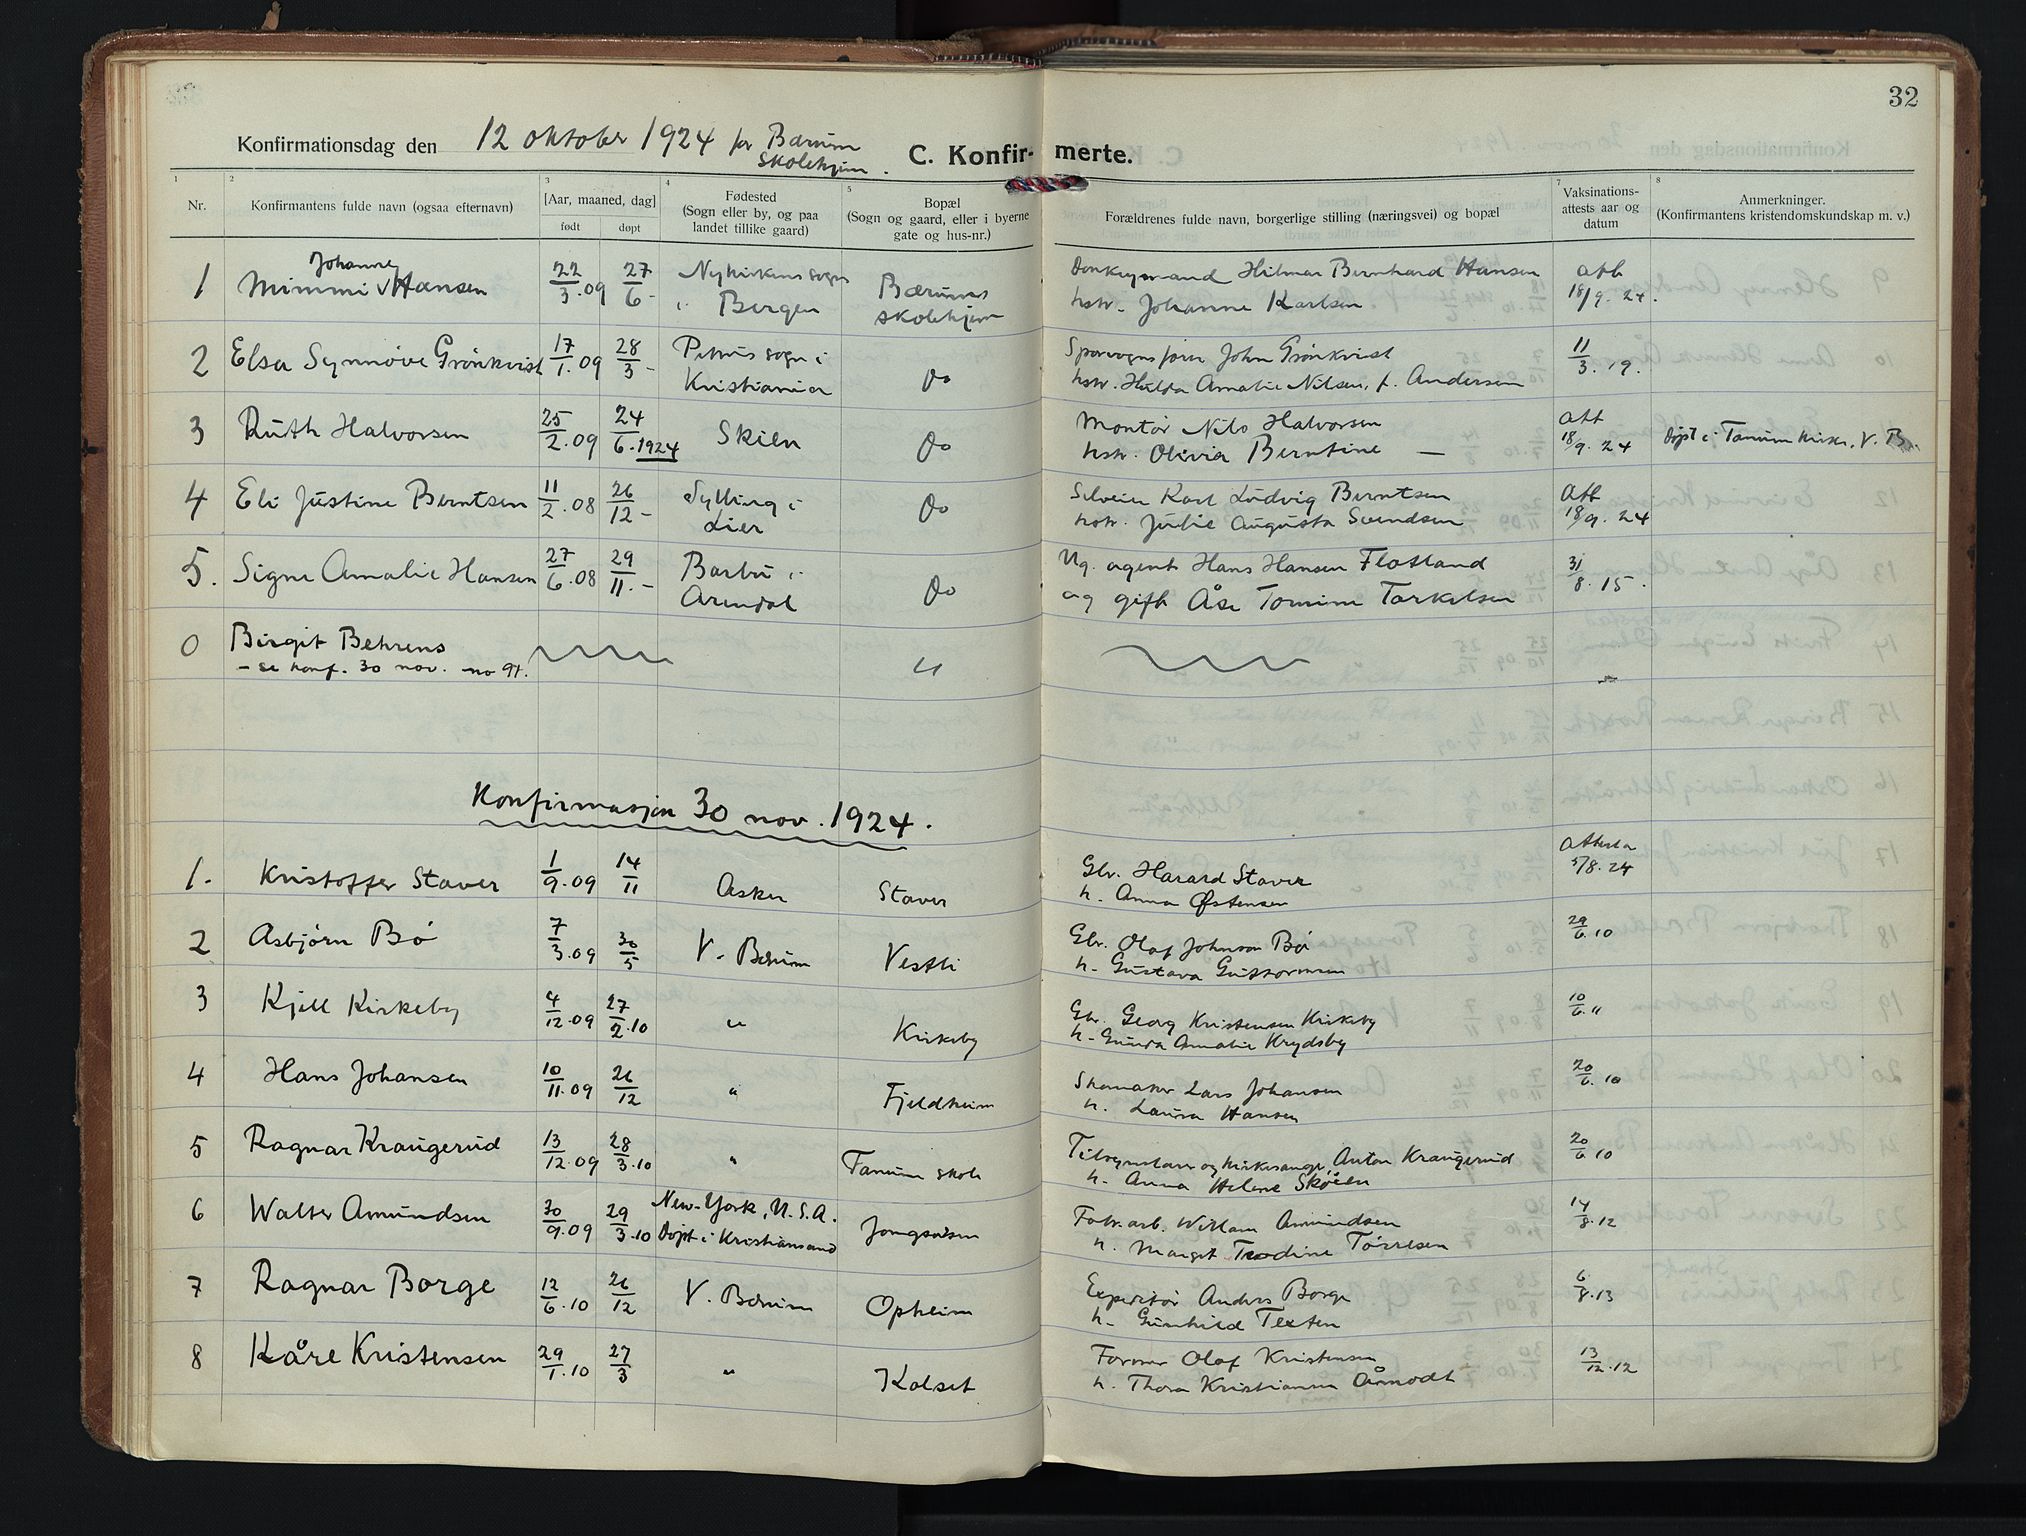 32
Konfirmationsdag den 12 oktober 1924 for Bærum
Skolehjem.
C. Konfir- merte.
1 2 3 4 5 7 8
Nr.
Konfirmantens fulde navn (ogsaa efternavn)
[Aar, maaned, dag]
født døpt
Fødested
(Sogn eller by, og paa
landet tillike gaard)
Bopæl
(Sogn og gaard, eller i byerne
gate og hus-nr.)
Forældrenes fulde navn, borgerlige stilling (næringsvei) og bopæl
Vaksinations-
attests aar og
datum
Anmerkninger.
(Konfirmantens kristendomskundskap m. v.)
Johanne
1 Mimmi v Hansen 22/3.09 27/6- Nykirkens sogn
i Bergen
Bærums
skolehjem
Donkeymand Hilmar Bernhard Hansen
hstr. Johanne Karlsen
att
18/9. 24.
2 Elsa Synnøve Grönkvist 17/1.09 28/3- Petrus sogn i
Kristiania
Do
Sporvognsfører John Grönkvist
hstr. Hulda Amalie Nilsen, f. Andersen
11/3.19.
3 Ruth Halvorsen 25/2.09 24/6.1924 Skien Do
Montör Nils Halvorsen
hstr. Olivia Berntine —
att
18/9. 24
Døpt i Tanum kirke, V. B.
4 Eli Justine Berntsen 11/2.08 26/12- Sylling i
Lier
Do
Karl Ludvig Berntsen
hstr. Julie Augusta Svendsen
att
18/9. 24
5. Signe Amalie Hansen 27/6.08 29/11.- Barbu i
Arendal
Do
Ug. agent Hans Hansen Flatland
og gift Åse Tomine Torkelsen
31/8.15.
0 Birgit Behrens
- se konf. 30 nov. no 91.
"
Konfirmasjon 30 nov. 1924.
1. Kristoffer Staver 1/9.09 14/11 Asker Staver
Gbr. Harard Staver
h. Anna Østensen
Attesta
5/8. 24
2 Asbjörn Bö 7/3.09 30/5 V. Bærum Vestli
Gbr. Olaf Johnson Bö
h. Gustava Guttormsen
29/6.10
3 Kjell Kirkeby 4/12.09 27/2.10 " Kirkeby
Gbr. Georg Kristensen Kirkeby
h. Gunda Amalie Krydsby
10/6."
4 Hans Johansen 10/11.09 26/12 " Fjeldheim
Skomaker Lars Johansen
h. Laura Hansen
20/6.10
5 Ragnar Kraugerud 13/12.09 28/3.10 " Tanum skole
og kirkesanger Anton Kraugerud
h. Anna Helene Skøien
20/6.10
6 Walter Amundsen 30/9.09 29/3.10 New-York, U.S.A.
Döpt i Kristiansand
Jongsåsen
Fabr. arb. William Amundsen
h. Margit Trodine Törresen
14/8.12
7 Ragnar Borge 12/6.10 26/12 V. Bærum Opheim
Expeditör Anders Borge
h. Gunhild Texten
6/8.13
8 Kåre Kristensen 29/1.10 27/3 " Kolset
Former Olaf Kristensen
h. Thora Kristianna Åmodt
13/12.12